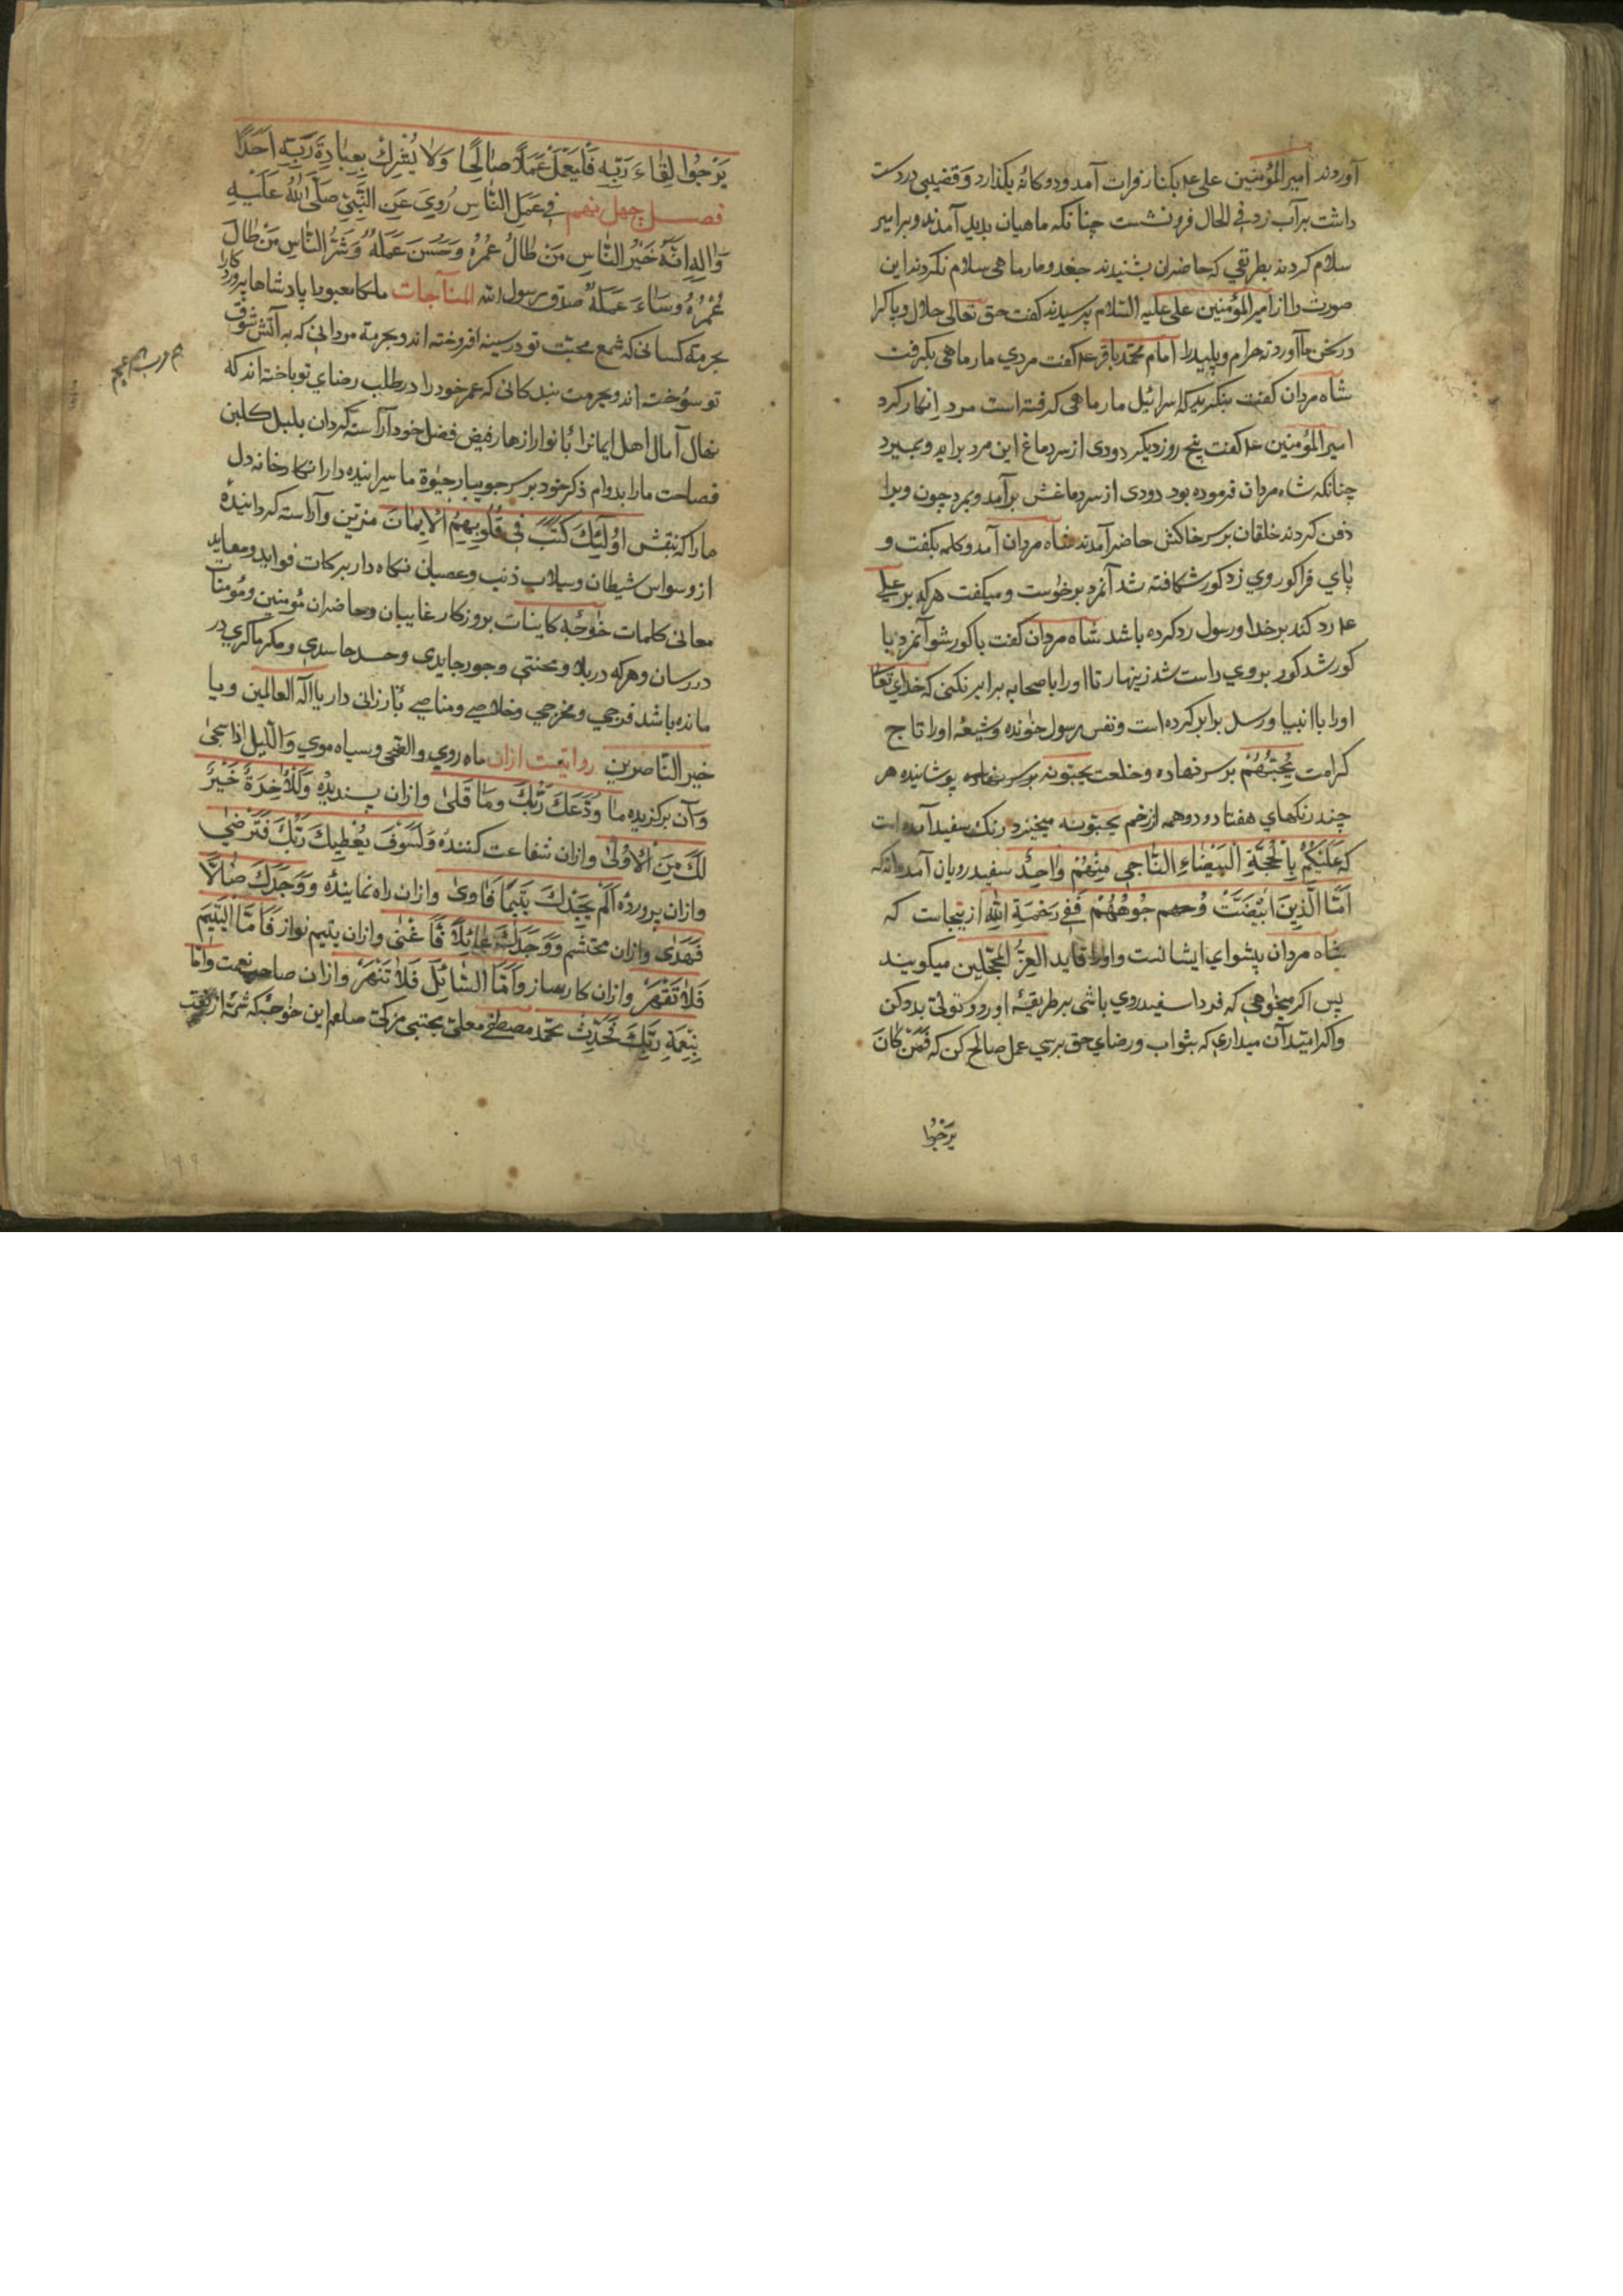 آوردند امیرالمؤمنین علی ع۴ بکنار فرات آمد و دوکانه بکذارد و قضیبی در دست
داشت بر آب زد فی الحال فرو نشست چنانکه ماهیان بدید آمدند و بر امیر
سلام کردند بطریقی که حاضران بشنیدند جغد و مارماهی سلام نکردند این
صورت را از امیرالمؤمنین علی علیه السّلام پرسیدند کفت حق تعالی حلال و پاک را
در سخن ما آورد نه حرام و پلید را امام محمّد باقر ع۴ کفت مردی مارماهی بکرفت
شاه مردان کفت بنکرید که اسرائیل مارماهی کرفته است مرد انکار کرد
امیرالمؤمنین ع۴ کفت پنج روز دیکر دودی از سر دماغ این مرد براید و بمیرد
چنانکه شاه مردان فرموده بود دودی از سر دماغش برآمد و بمرد چون ویرا
دفن کردند خلقان بر سر خاکش حاضر آمدند شاه مردان آمد و کلمه بکفت و
پای فرا کور وی زد کور شکافته شد آنمرد برخواست و میکفت هر که بر علی
ع۴ رد کند بر خدا و رسول رد کرده باشد شاه مردان کفت با کور شو آنمرد با
کور شد کور بر وی راست شد زینهار تا او را با صحابه برابر نکنی که خدای تعالی
او را با انبیا و رسل برابر کرده است و نفس رسول خوانده و شیعهٔ او را تاج
کرامت یُحِبُّهُمْ بر سر نهاده و خلعت یحبّونه پوشانیده هر
چند رنکهای هفتاد و دو همه از خم یحبّونه میخیزد رنک سفید آمده است
که عَلَیْکُمْ بِالْحُجَّةِ الْبَیْضَاءِ النَّاجِی مِنْهُمْ وَاحِدٌ سفید رویان آمده اند که
اَمَّا الَّذِینَ ابْیَضَّتْ وُجُوهُهُمْ فَفِی رَحْمَةِ اللهِ از ینجاست که
شاه مردان پیشوای ایشانست و او را قاید الغرّ المحجّلین میکویند
پس اکر میخواهی که فردا سفید روی باشی بر طریقهٔ او رو و تولّی بدو کن
و اکر امّید آن میداری که بثواب و رضای حق برسی عمل صالح کن که فَمَنْ کَانَ
یَرْجُوا
یَرْجُوا لِقَاءَ رَبِّهِ فَلْیَعْمَلْ عَمَلًا صَالِحًا وَلَا یُشْرِكْ بِعِبَادَةِ رَبِّهِ اَحَدًا
فصل چهل نهم فی عَمَلِ النَّاسِ رُوِیَ عَنِ النَّبِیِّ صَلَّی اللهُ عَلَیْهِ
وَالِهِ اِنَّهُ خَیْرُ النَّاسِ مَنْ طَالَ عُمُرُهُ وَحَسُنَ عَمَلُهُ وَشَرُّ النَّاسِ مَنْ طَالَ
عُمُرُهُ وَسَاءَ عَمَلُهُ صدق رسول الله المناجات ملکا معبودا پادشاها پروردکارا
بحرمة کسانی که شمع محبّت تو در سینه افروخته اند و بحرمة مردانی که به آتش شوق
تو سوخته اند و بحرمت بندکانی که عمر خود را در طلب رضای تو باخته اند که
نهال آمال اهل ایمانرا بانوار ازهار فیض فضل خود آراسته کردان بلبل کلبن
فصاحت ما را بدوام ذکر خود بر سر جویبار حیوة ما سراینده دار انکارخانه دل
ما را که بنقش اُولَئِكَ کَتَبَ فِی قُلُوبِهِمُ الْاِیمَانَ مزیّن و آراسته کردانیدهٔ
از وسواس شیطان و سیلاب ذنب و عصیان نکاه دار برکات فواید و معاید
معانی کلمات خواجهٔ کاینات بروزکار غایبان و حاضران مؤمنین و مؤمنات
در رسان و هر که در بلا و محنتی و جور جایری و حسد حاسدی و مکر ماکری در
مانده باشد فرجی و مخرجی و خلاصی و مناصی بارزانی دار یا اله العالمین و یا
خیر النّاصرین روایتست ازان ماه روی والضّحی و سیاه موی وَاللَّیْلِ اِذَا سَجَی
وآن برکزیده مَا وَدَّعَكَ رَبُّكَ وَمَا قَلَی وازان پسندیدهٔ وَلَلْآخِرَةُ خَیْرٌ
لَكَ مِنَ الْاُولَی وازان شفاعت کنندهٔ وَلَسَوْفَ یُعْطِیكَ رَبُّكَ فَتَرْضَی
وازان پروردهٔ اَلَمْ یَجِدْكَ یَتِیمًا فَاوَی وازان راه نمایندهٔ وَوَجَدَكَ ضَالًّا
فَهَدَی وازان محتشم وَوَجَدَكَ عَائِلًا فَاَغْنَی وازان یتیم نواز فَاَمَّا الْیَتِیمَ
فَلَا تَقْهَرْ وازان کارساز وَاَمَّا السَّائِلَ فَلَا تَنْهَرْ وازان صاحب نعمت وَاَمَّا
بِنِعْمَةِ رَبِّكَ فَحَدِّثْ محمّد مصطفی معلّی مجتبی مزکّی صلعم این خواجه که شمّهٔ از نعت